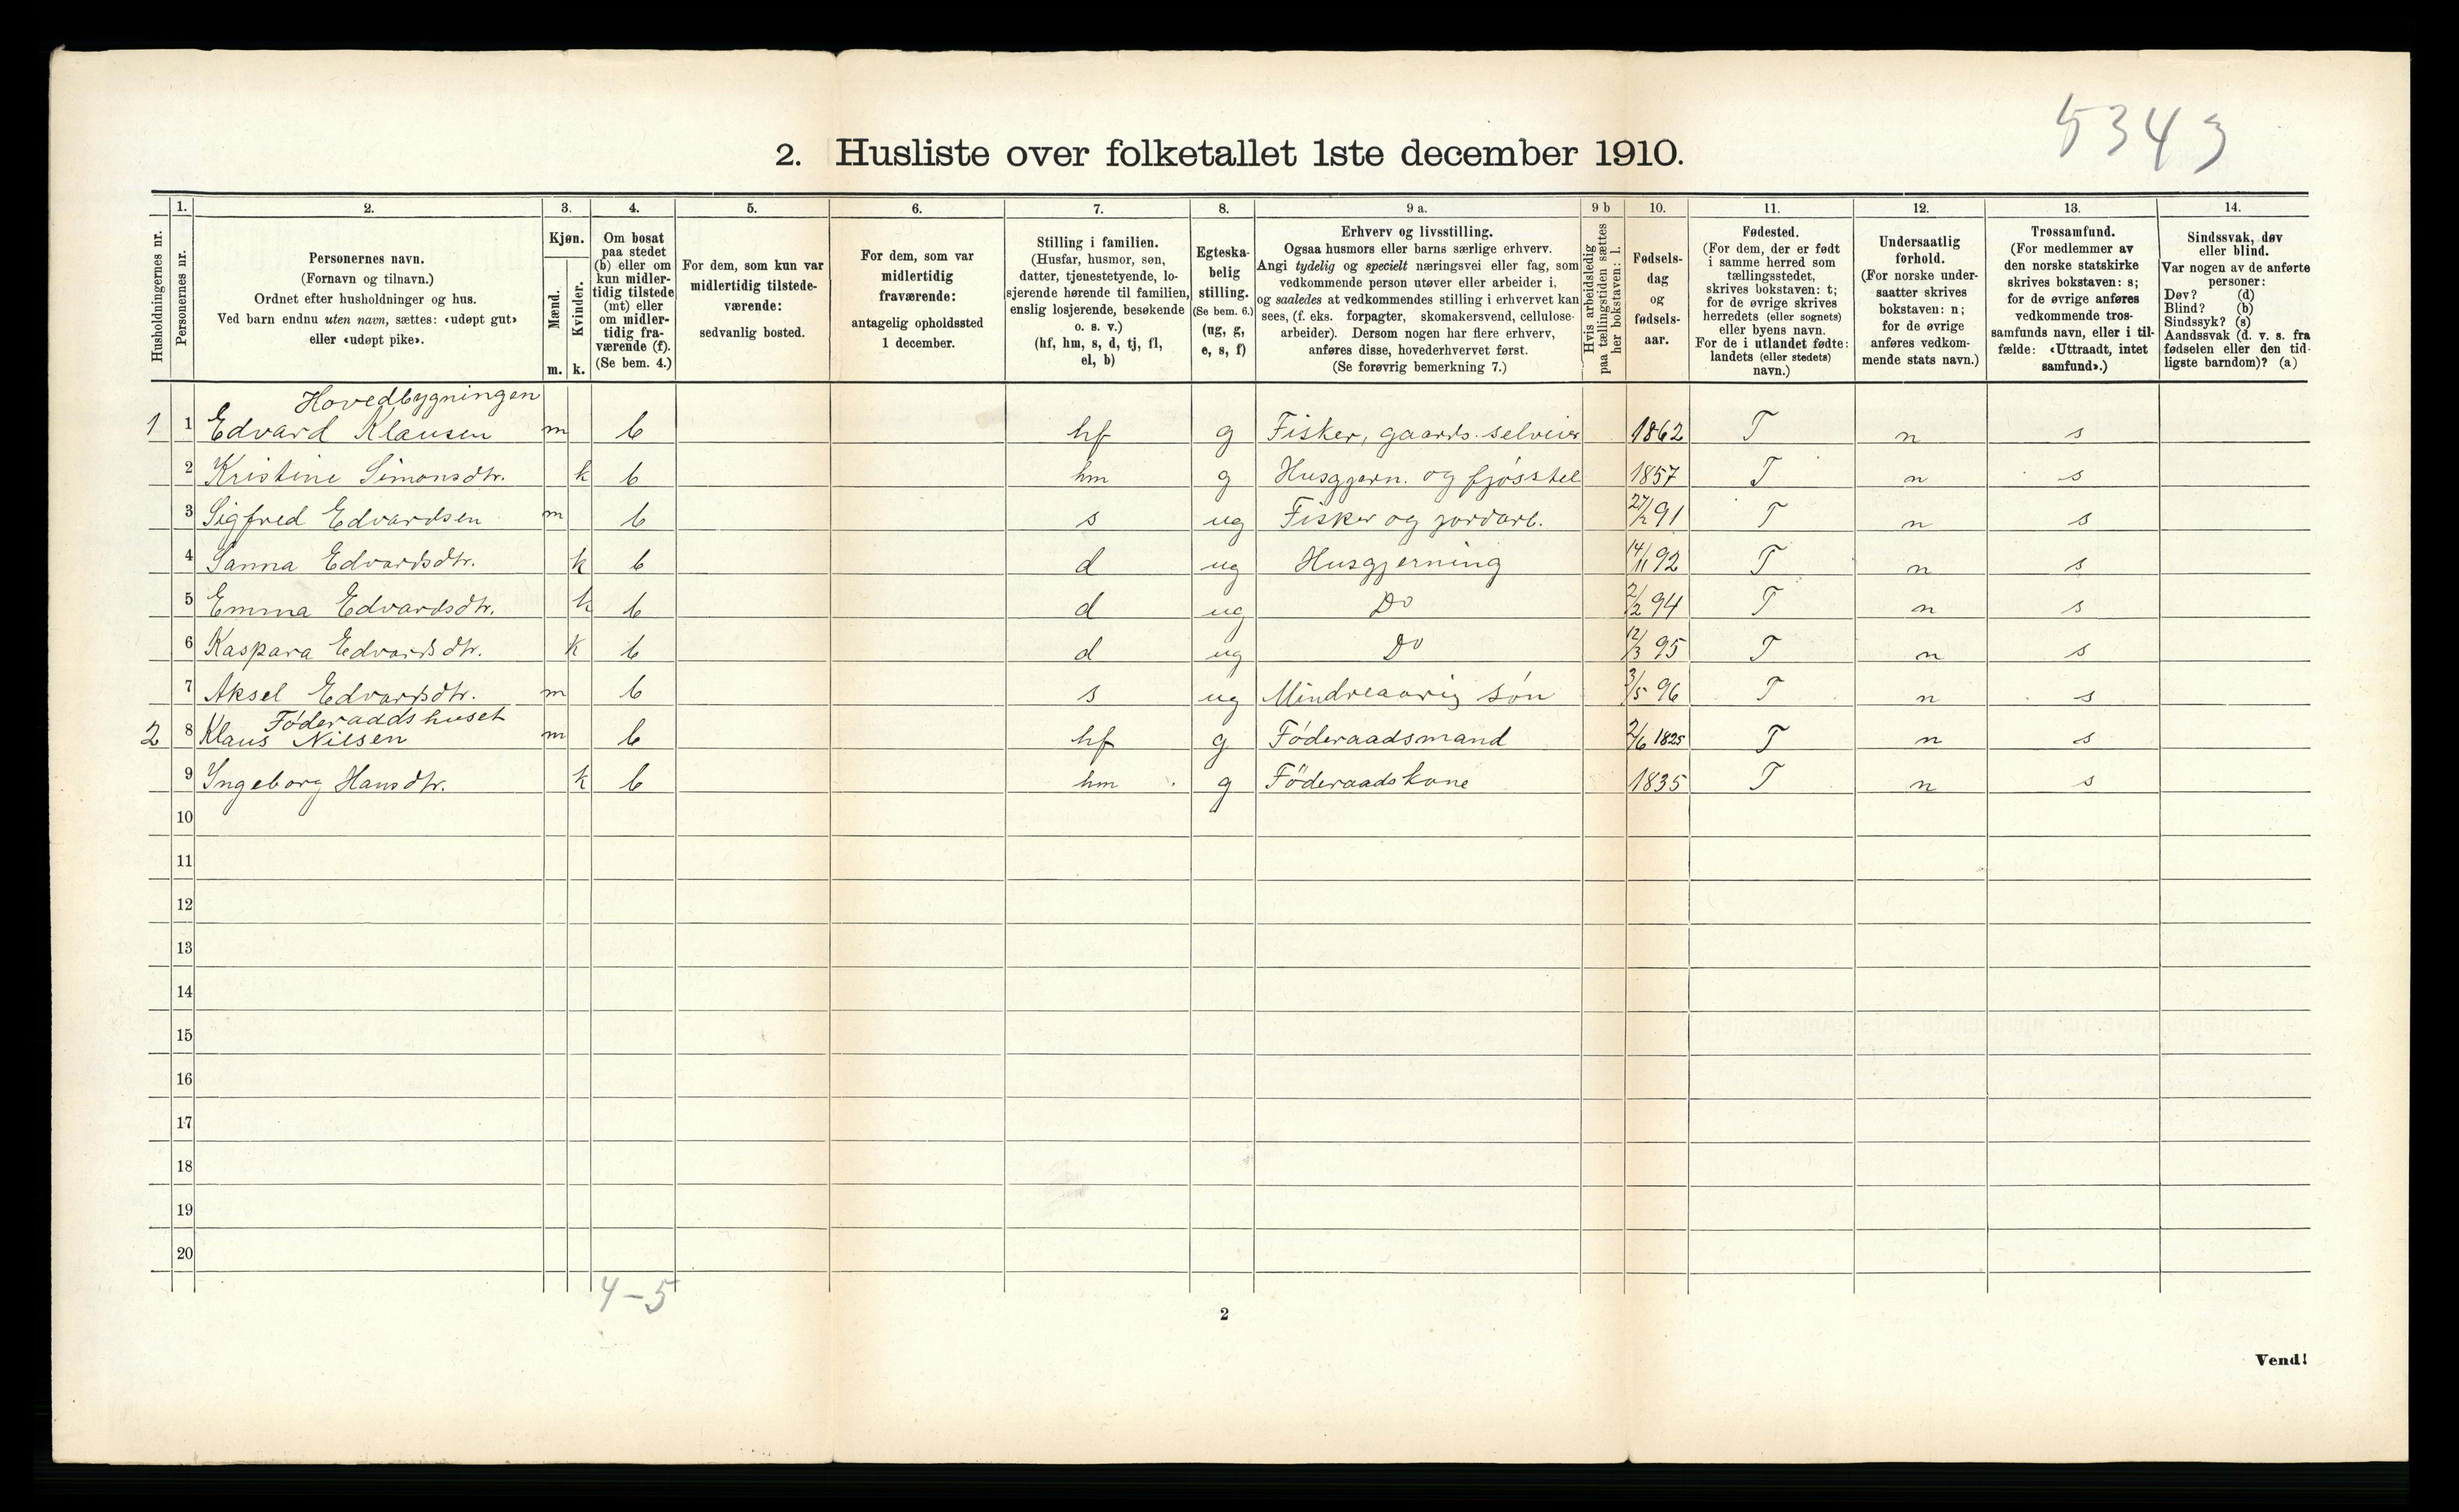 5343
2. Husliste over folketallet 1ste december 1910.
Husholdningernes nr.
1. Personernes nr.
2. Personernes navn. (Fornavn og tilnavn.) Ordnet efter husholdninger og hus. Ved barn endnu uten navn, sættes: «udøpt gut» eller «udøpt pike».
3. Kjøn. Mænd. m. Kvinder. k.
4. Om bosat paa stedet (b) eller om kun midlertidig tilstede (mt) eller om midlertidig fraværende (f). (Se bem. 4.)
5. For dem, som kun var midlertidig tilstedeværende: sedvanlig bosted.
6. For dem, som var midlertidig fraværende: antagelig opholdssted 1 december.
7. Stilling i familien. (Husfar, husmor, søn, datter, tjenestetyende, losjerende hørende til familien, enslig losjerende, besøkende o. s. v.) (hf, hm, s, d, tj, fl, el, b)
8. Egteskabelig stilling. (Se bem. 6.) (ug, g, e, s, f)
9 a. Erhverv og livsstilling. Ogsaa husmors eller barns særlige erhverv. Angi tydelig og specielt næringsvei eller fag, som vedkommende person utøver eller arbeider i, og saaledes at vedkommendes stilling i erhvervet kan sees, (f. eks. forpagter, skomakersvend, cellulosearbeider). Dersom nogen har flere erhverv, anføres disse, hovederhvervet først. (Se forøvrig bemerkning 7.)
9 b Hvis arbeidsledig paa tællingstiden sættes her bokstaven: l.
10. Fødselsdag og fødselsaar.
11. Fødested. (For dem, der er født i samme herred som tællingsstedet, skrives bokstaven: t; for de øvrige skrives herredets (eller sognets) eller byens navn. For de i utlandet fødte: landets (eller stedets) navn.)
12. Undersaatlig forhold. (For norske undersaatter skrives bokstaven: n; for de øvrige anføres vedkommende stats navn.)
13. Trossamfund. (For medlemmer av den norske statskirke skrives bokstaven: s; for de øvrige anføres vedkommende trossamfunds navn, eller i tilfælde: «Uttraadt, intet samfund».)
14. Sindssvak, døv eller blind. Var nogen av de anførte personer: Døv? (d) Blind? (b) Sindssyk? (s) Aandssvak (d. v. s. fra fødselen eller den tidligste barndom)? (a)
Hovedbygningen
1 1 Edvard Klausen m b hf g Fisker, gaards. selveier 1862 T n s
2 Kristine Simonsdtr. k b hm g Husgjern. og fjøsstel 1857 T n s
3 Sigfred Edvardsen m b s ug Fisker og jordarb. 27/2 91 T n s
4 Sanna Edvardsdtr. k b d ug Husgjerning 14/11 92 T n s
5 Emma Edvardsdtr. k b d ug Do 2/2 94 T n s
6 Kaspara Edvardsdtr. k b d ug Do 12/3 95 T n s
7 Aksel Edvardsdtr. m b s ug Mindreaarig søn 3/5 96 T n s
Føderaadshuset
2 8 Klaus Nilsen m b hf g Føderaadsmand 2/6 1825 T n s
9 Ingeborg Hansdtr. k b hm g Føderaadskone 1835 T n s
10
11
12
13
14
15
16
17
18
19
20
4-5
2
Vend!